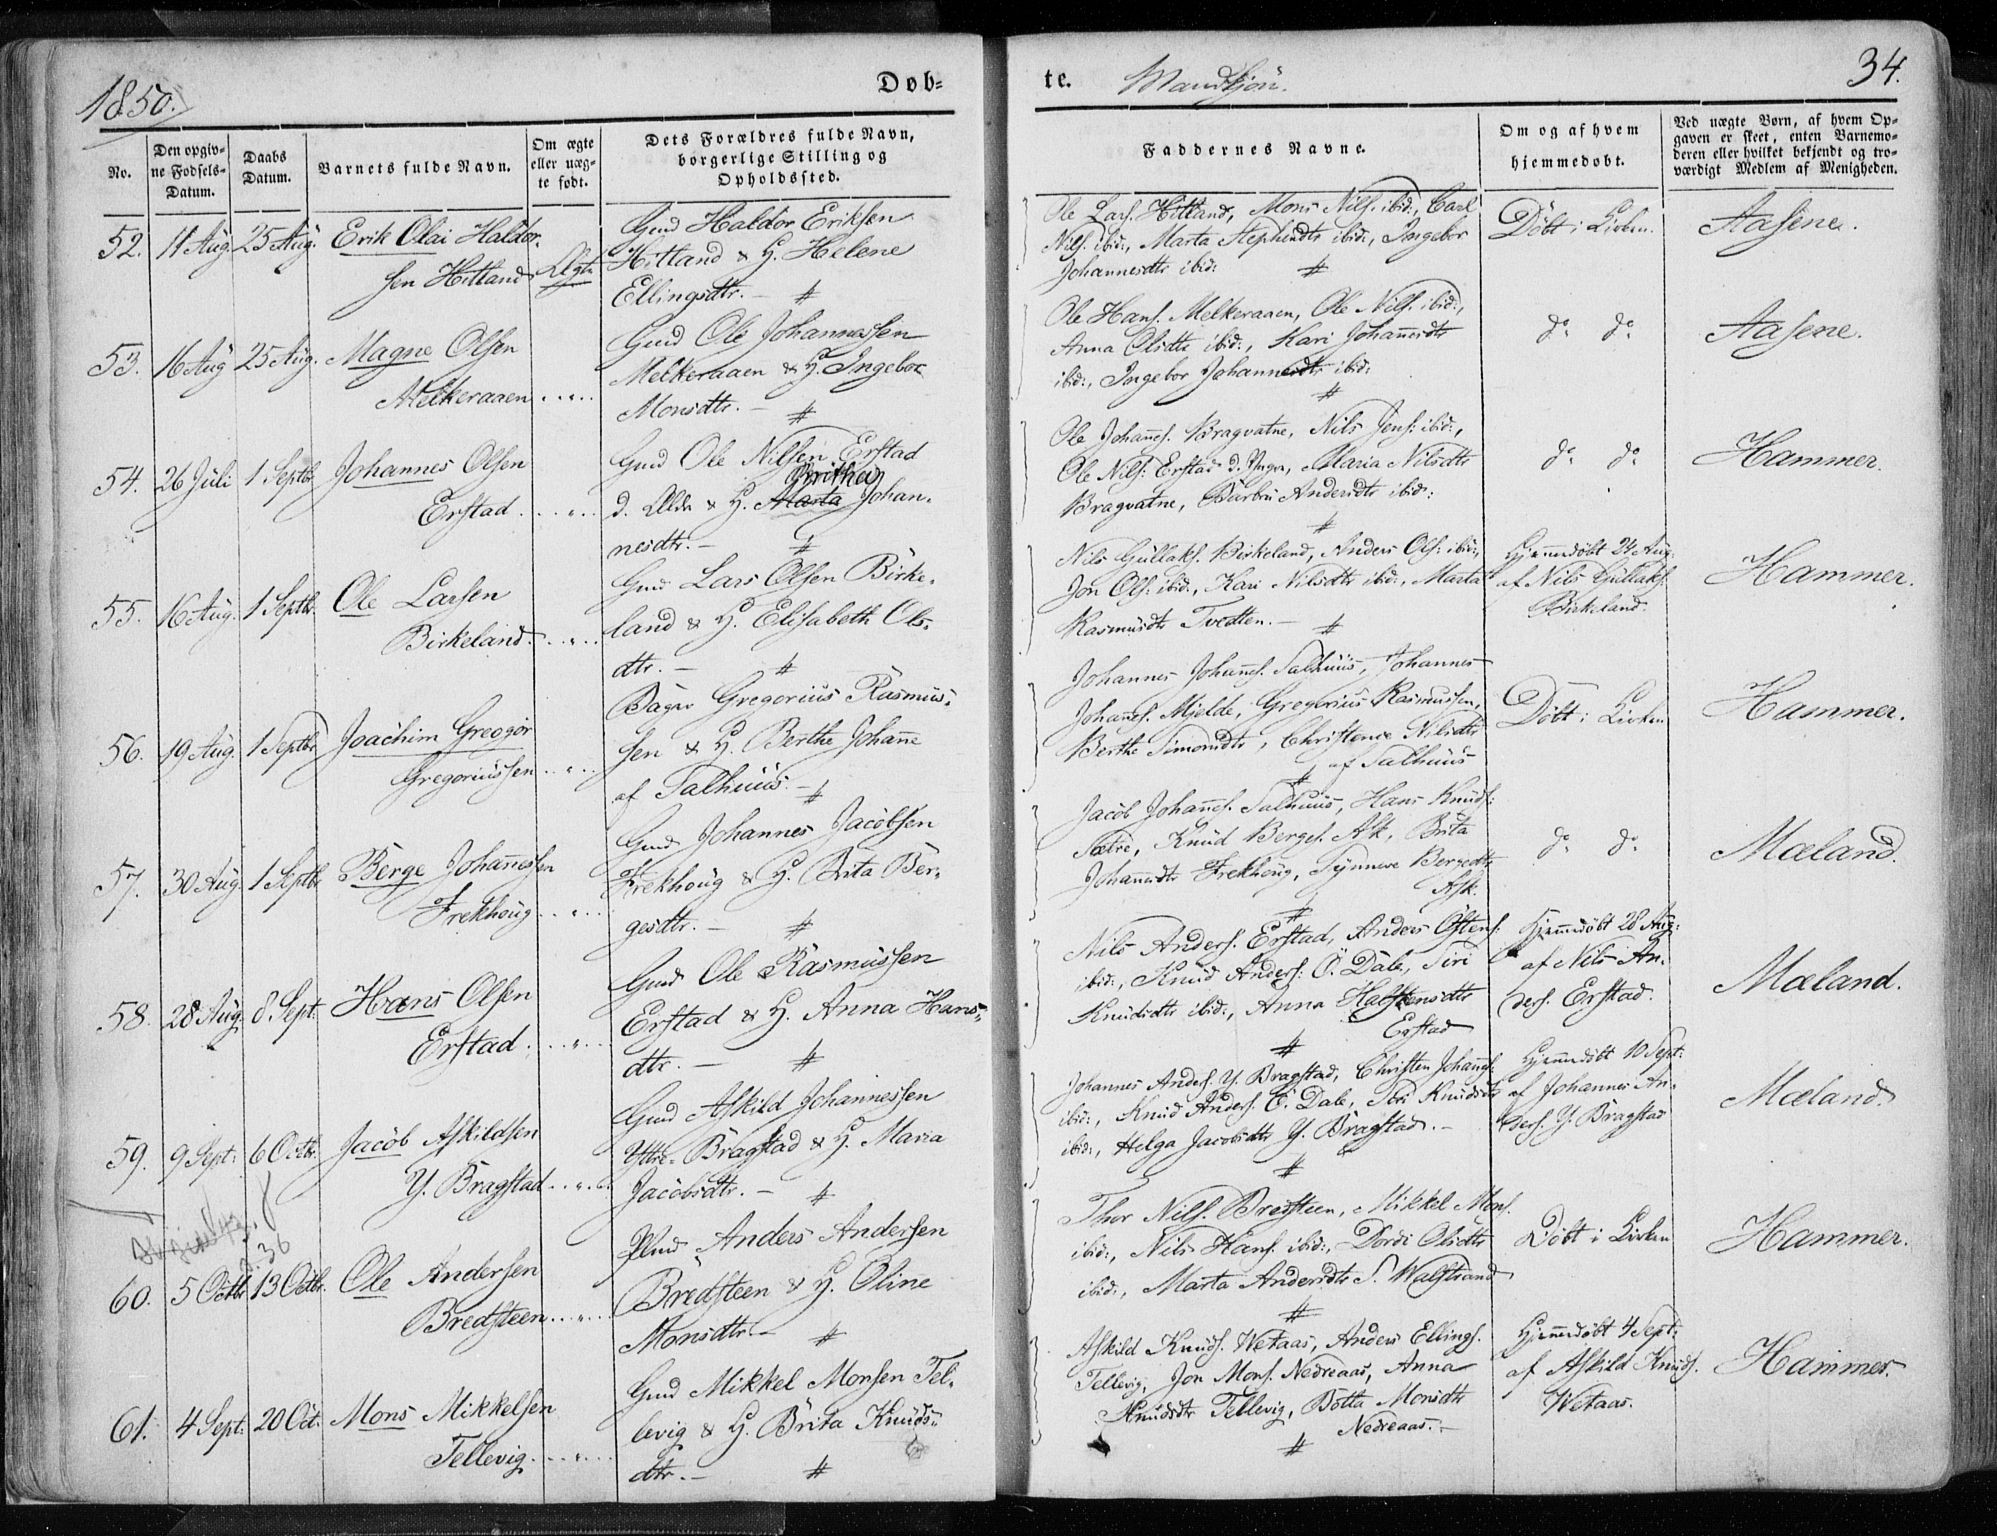 1850.
Døb-
No.
Den opgiv-
ne Fødsels-
Datum.
Daabs
Datum.
Barnets fulde Navn.
Om ægte
eller uæg-
te født.
Dets Forældres fulde Navn,
borgerlige Stilling og
Opholdssted.
52. 11 Aug. 25 Aug. Erik Olai Haldor-
sen Hitland Ægte
Gmd Haldor Eriksen
Hitland & H. Helene
Ellingsdtr. —
53. 16 Aug 25 Aug. Magne Olsen
Melkeraaen . . " . .
Gmd Ole Johannessen
Melkeraaen & H. Ingebor
Monsdtr. —
54. 26 Juli 1 Septbr Johannes Olsen
Erstad . . . " . .
Gmd Ole Nilsen Erstad
Brithe
d. Ældr & H. Marta Johan-
nesdtr. —
55. 16 Aug. 1 Septbr. Ole Larsen
Birkeland . . . " . .
Gmd Lars Olsen Birke-
land & H. Elisabeth Ols-
dtr. —
56. 19 Aug. 1 Septbr Joachim Greggor
Gregoriussen . . " . .
Gregorius Rasmus-
sen & H. Berthe Johanne
af Salhuus. —
57. 30 Aug 1 Septbr Berge Johannessen
Frekhoug . . " . .
Gmd Johannes Jacobsen
Frekhoug & H. Brita Ber-
gesdtr. —
58. 28 Aug. 8 Sept. Hans Olsen
Erstad . . . " . .
Gmd Ole Rasmussen
Erstad & H. Anna Hans-
dtr. —
59. 9 Sept: 6 Octb. Jacob Askildsen
Y. Bragstad . . " . .
Gmd Askild Johannessen
Yttre Bragstad & H. Maria
Jacobsdtr. —
36
60. 5 Octbr 13 Octbr. Ole Andersen
Bredsteen . . " . .
Anders Andersen
Bredsteen & H. Oline
Monsdtr. —
61. 4 Sept: 20 Oct. Mons Mikkelsen
Tellevig . . . " . .
Gmd Mikkel Monsen Tel-
levig & H. Brita Knuds-
dtr. —
te. Mandkjøn.
34.
Faddernes Navne.
Om og af hvem
hjemmedøbt.
Ved uægte Børn, af hvem Op-
gaven er skeet, enten Barnemo-
deren eller hvilket bekjendt og tro-
værdigt Medlem af Menigheden.
Ole Lars. Hitland, Mons Nils. ibid:, Carl
Nils. ibid:, Marta Stephensdtr ibid:, Ingebor
Johannesdtr ibid:
Døbt i Kirken. Aasene.
Ole Hans. Melkeraaen, Ole Nils. ibid:,
Anna Olsdtr ibid:, Kari Johannesdtr
ibid:, Ingebor Johannesdtr ibid:
do do Aasene.
Ole Johans. Bragvatne, Nils Jens: ibid:,
Ole Nils: Erstad d. Yngre, Maria Nilsdtr
Bragvatne, Barbru Andersdtr ibid:
do do Hammer.
Nils Gullaks. Birkeland, Anders Ols: ibid:,
Jon Ols: ibid:, Kari Nilsdtr ibid:, Marta
Rasmusdtr Tvedten. —
Hjemmedøbt 24 Aug:
af Nils Gullaks.
Birkeland. Hammer.
Johannes Johans. Salhuus, Johannes
Johans. Mjelde, Gregorius Rasmussen,
Berthe Simonsdtr, Christence Nilsdtr
af Salhuus
Døbt i Kirken Hammer.
Jacob Johans. Salhuus, Hans Knuds:
Sætre, Knud Berges. Ask, Brita
Johannesdtr Frekhoug, Synneve Bergesdtr
Ask.
do do Mæland.
Nils Anders. Erstad, Anders Østens.
ibid:, Knud Anders. Ö. Dale, Siri
Knudsdtr ibid:, Anna Halstensdtr
Erstad
Hjemmedøbt 28 Aug:
af Nils An-
ders. Erstad. Mæland.
Johannes Anders. Y. Bragstad, Christen Johans:
ibid:, Knud Anders. Ö. Dale, Siri Knudsdtr
ibid:, Helga Jacobsdtr Y. Bragstad. —
Hjemmedøbt 10 Sept:
af Johannes An-
ders. Y. Bragstad Mæland.
Thor Nils. Bredsteen, Mikkel Mons.
ibid:, Nils Hans. ibid:, Dordi Olsdtr
ibid:, Marta Andersdtr S. Walstrand
Døbt i Kirken Hammer.
Askild Knuds. Wetaas, Anders Ellings.
Tellevig, Jon Mons. Nedreaas, Anna
Knudsdtr Tellevig, Botta Monsdtr
Nedreaas. —
Hjemmedøbt 4 Sept:
af Askild Knuds.
Wetaas. Hammer.